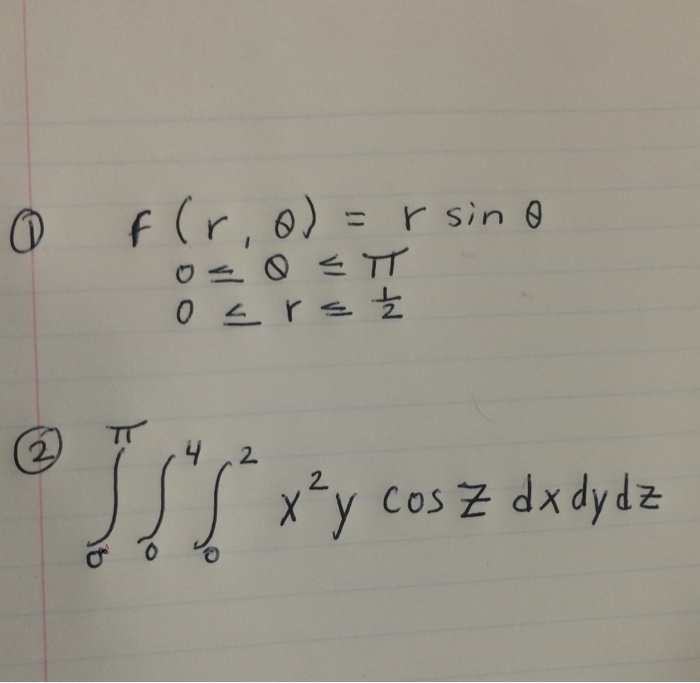 ① f(r, θ) = r sin θ
0 ≤ θ ≤ π
0 ≤ r ≤ 1/2
② ∫₀^π ∫₀^4 ∫₀^2 x²y cos z dx dy dz